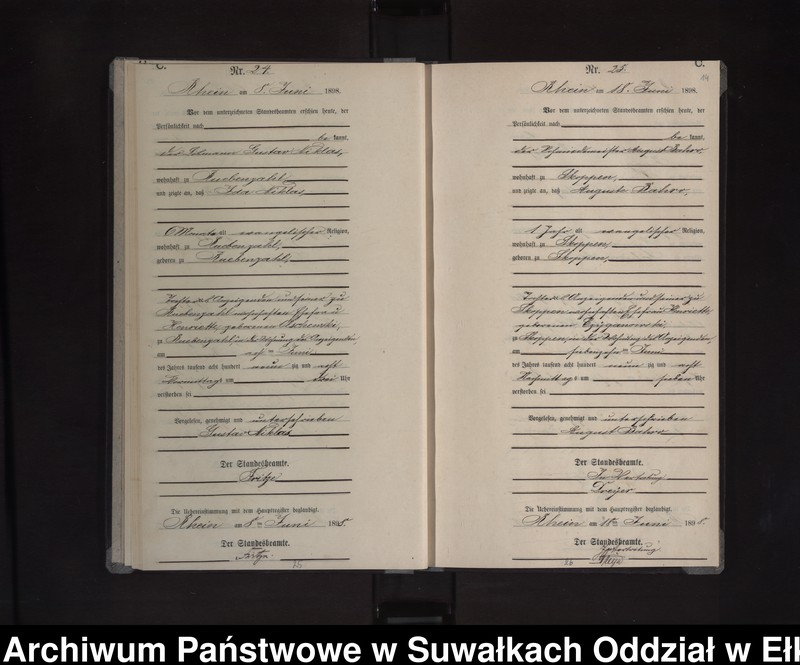 C.
Nr. 24.
Rhein am 8. Juni 1898.
Vor dem unterzeichneten Standesbeamten erschien heute, der
Persönlichkeit nach
be kannt,
der Gustav Niklas,
wohnhaft zu Ruebenzahl,
und zeigte an, daß Ida Niklas,
6 Monate alt evangelischer Religion,
wohnhaft zu Ruebenzahl,
geboren zu Ruebenzahl,
Tochter des Anzeigenden und seiner zu
Ruebenzahl wohnhaften Ehefrau
Henriette geborenen
zu Ruebenzahl in der Wohnung des Anzeigenden,
am acht ten Juni
des Jahres tausend acht hundert neun zig und acht
Vormittags um drei Uhr
verstorben sei
Vorgelesen, genehmigt und unterschrieben
Gustav Niklas
Der Standesbeamte.
Die Uebereinstimmung mit dem Hauptregister beglaubigt.
Rhein am 8ten Juni 1898.
Der Standesbeamte.
C.
Nr. 25.
Rhein am 18. Juni 1898.
Vor dem unterzeichneten Standesbeamten erschien heute, der
Persönlichkeit nach
be kannt,
der August
wohnhaft zu Skoppen,
und zeigte an, daß Auguste
1 Jahr alt evangelischer Religion,
wohnhaft zu Skoppen,
geboren zu Skoppen,
Tochter des Anzeigenden und seiner zu
Skoppen wohnhaften Ehefrau Henriette
geborenen Czyganowski,
zu Skoppen, in der Wohnung des Anzeigenden,
am siebenzehn ten Juni
des Jahres tausend acht hundert neun zig und acht
Nachmittags um sieben Uhr
verstorben sei
Vorgelesen, genehmigt und unterschrieben
August
Der Standesbeamte.
In Vertretung
Dreyer
Die Uebereinstimmung mit dem Hauptregister beglaubigt.
Rhein am 18ten Juni 1898.
Der Standesbeamte.
In Vertretung
Archiwum Państwowe w Suwałkach Oddział w Ełk